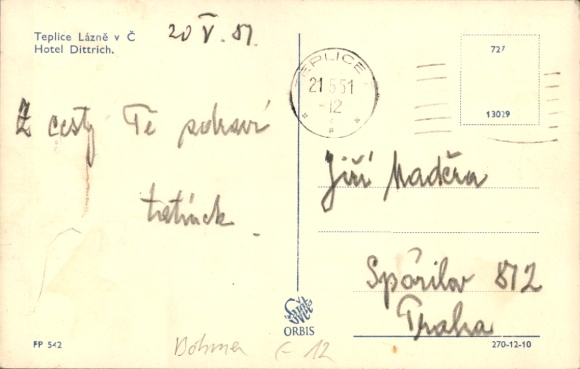 Teplice Lázně v Č
Hotel Dittrich.
20 V. 51.
TEPLICE
21.5.51
-12
727
13029
Z cesty Tě pozdraví
tatínek.
Jiří Maděra
Spořilov 812
Praha
ORBIS
FP 542
270-12-10
12